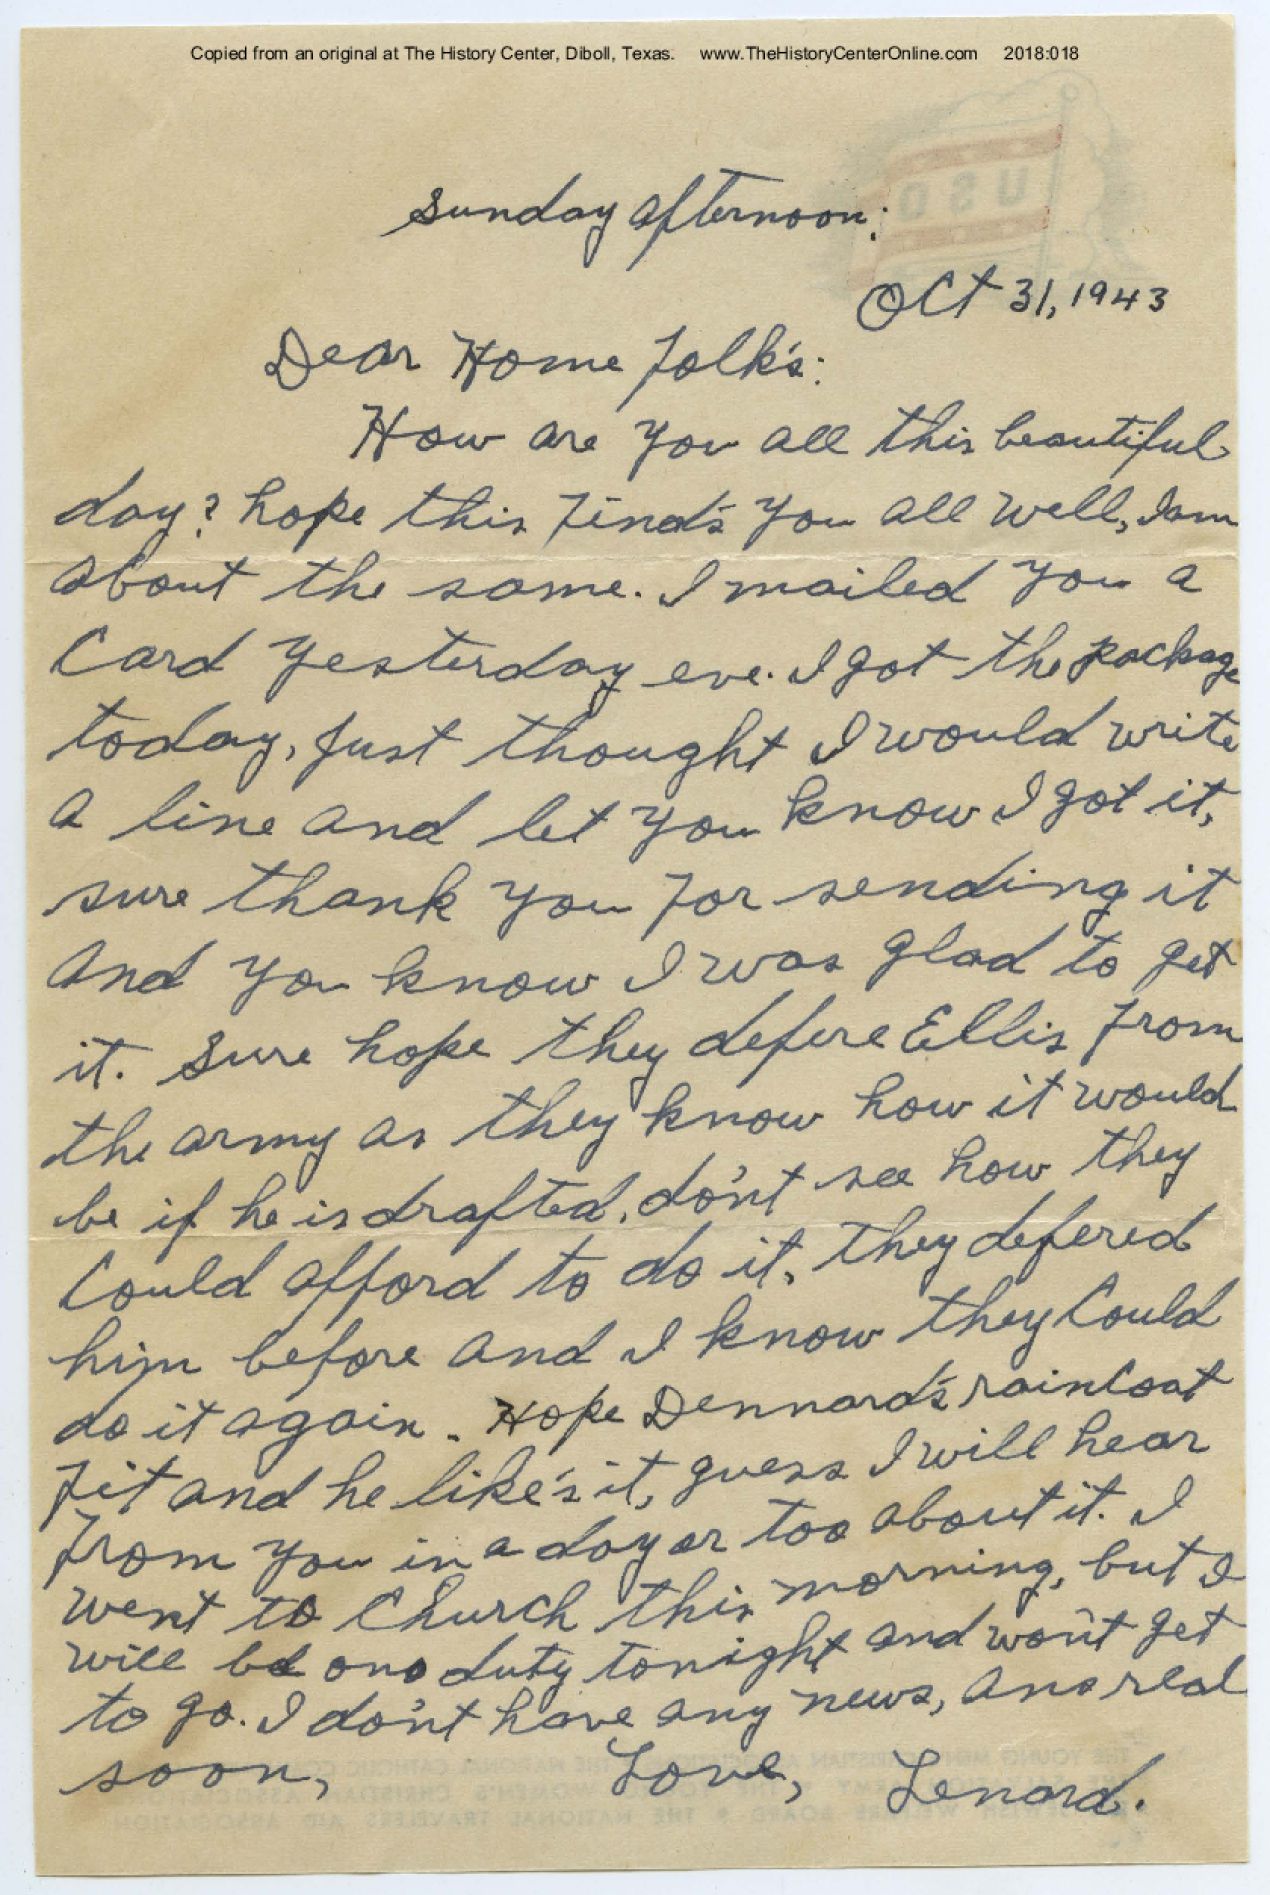 Copied from an original at The History Center, Diboll, Texas. www.TheHistoryCenterOnline.com 2018:018
USO
Sunday afternoon:
Oct 31, 1943
Dear Home Folk's:
How are you all this beautiful
day? hope this find's you all well, I am
about the same. I mailed you a
Card yesterday eve. I got the package
today, Just thought I would write
a line and let you know I got it,
sure thank you for sending it
and you know I was glad to get
it. Sure hope they defere Ellis from
the army as they know how it would
be if he is drafted, do'nt see how they
Could afford to do it, they defered
him before and I know they Could
do it again. Hope Dennard's rainCoat
fit and he like's it, guess I will hear
from you in a day or too about it. I
went to Church this morning, but I
will be on duty tonight and wo'nt get
to go. I do'nt have any news, ans real
soon, Love, Lenard.
THE YOUNG MEN'S CHRISTIAN ASSOCIATIONS THE NATIONAL CATHOLIC COMMUNITY
ARMY THE YOUNG WOMEN'S CHRISTIAN ASSOCIATIONS
JEWISH WELFARE BOARD THE NATIONAL TRAVELERS AID ASSOCIATION